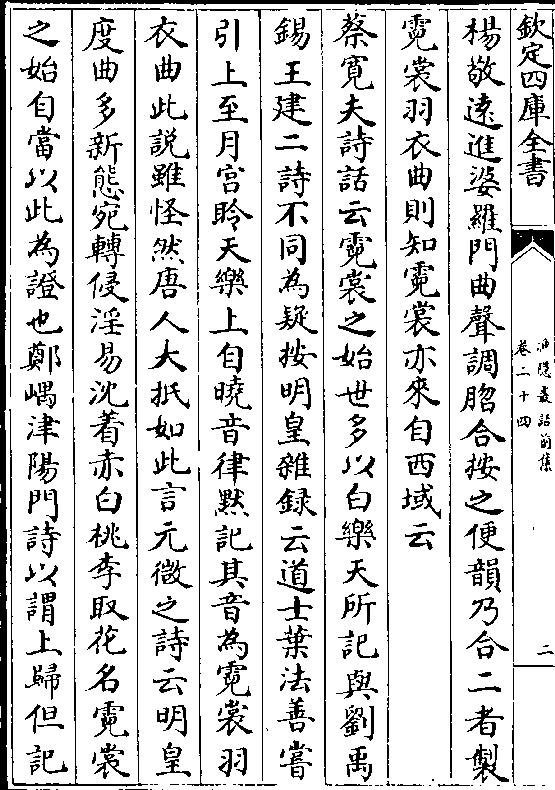 欽定四庫全書
漁隱叢話前集
卷二十四
二
楊敬遠進婆羅門曲聲調脗合按之便韻乃合二者製
霓裳羽衣曲則知霓裳亦來自西域云
蔡寛夫詩話云霓裳之始世多以白樂天所記與劉禹
錫王建二詩不同為疑按明皇雜録云道士葉法善嘗
引上至月宮聆天樂上自曉音律黙記其音為霓裳羽
衣曲此説雖怪然唐人大抵如此言元微之詩云明皇
度曲多新態宛轉侵淫易沈着赤白桃李取花名霓裳
之始自當以此為證也鄭嵎津陽門詩以謂上歸但記